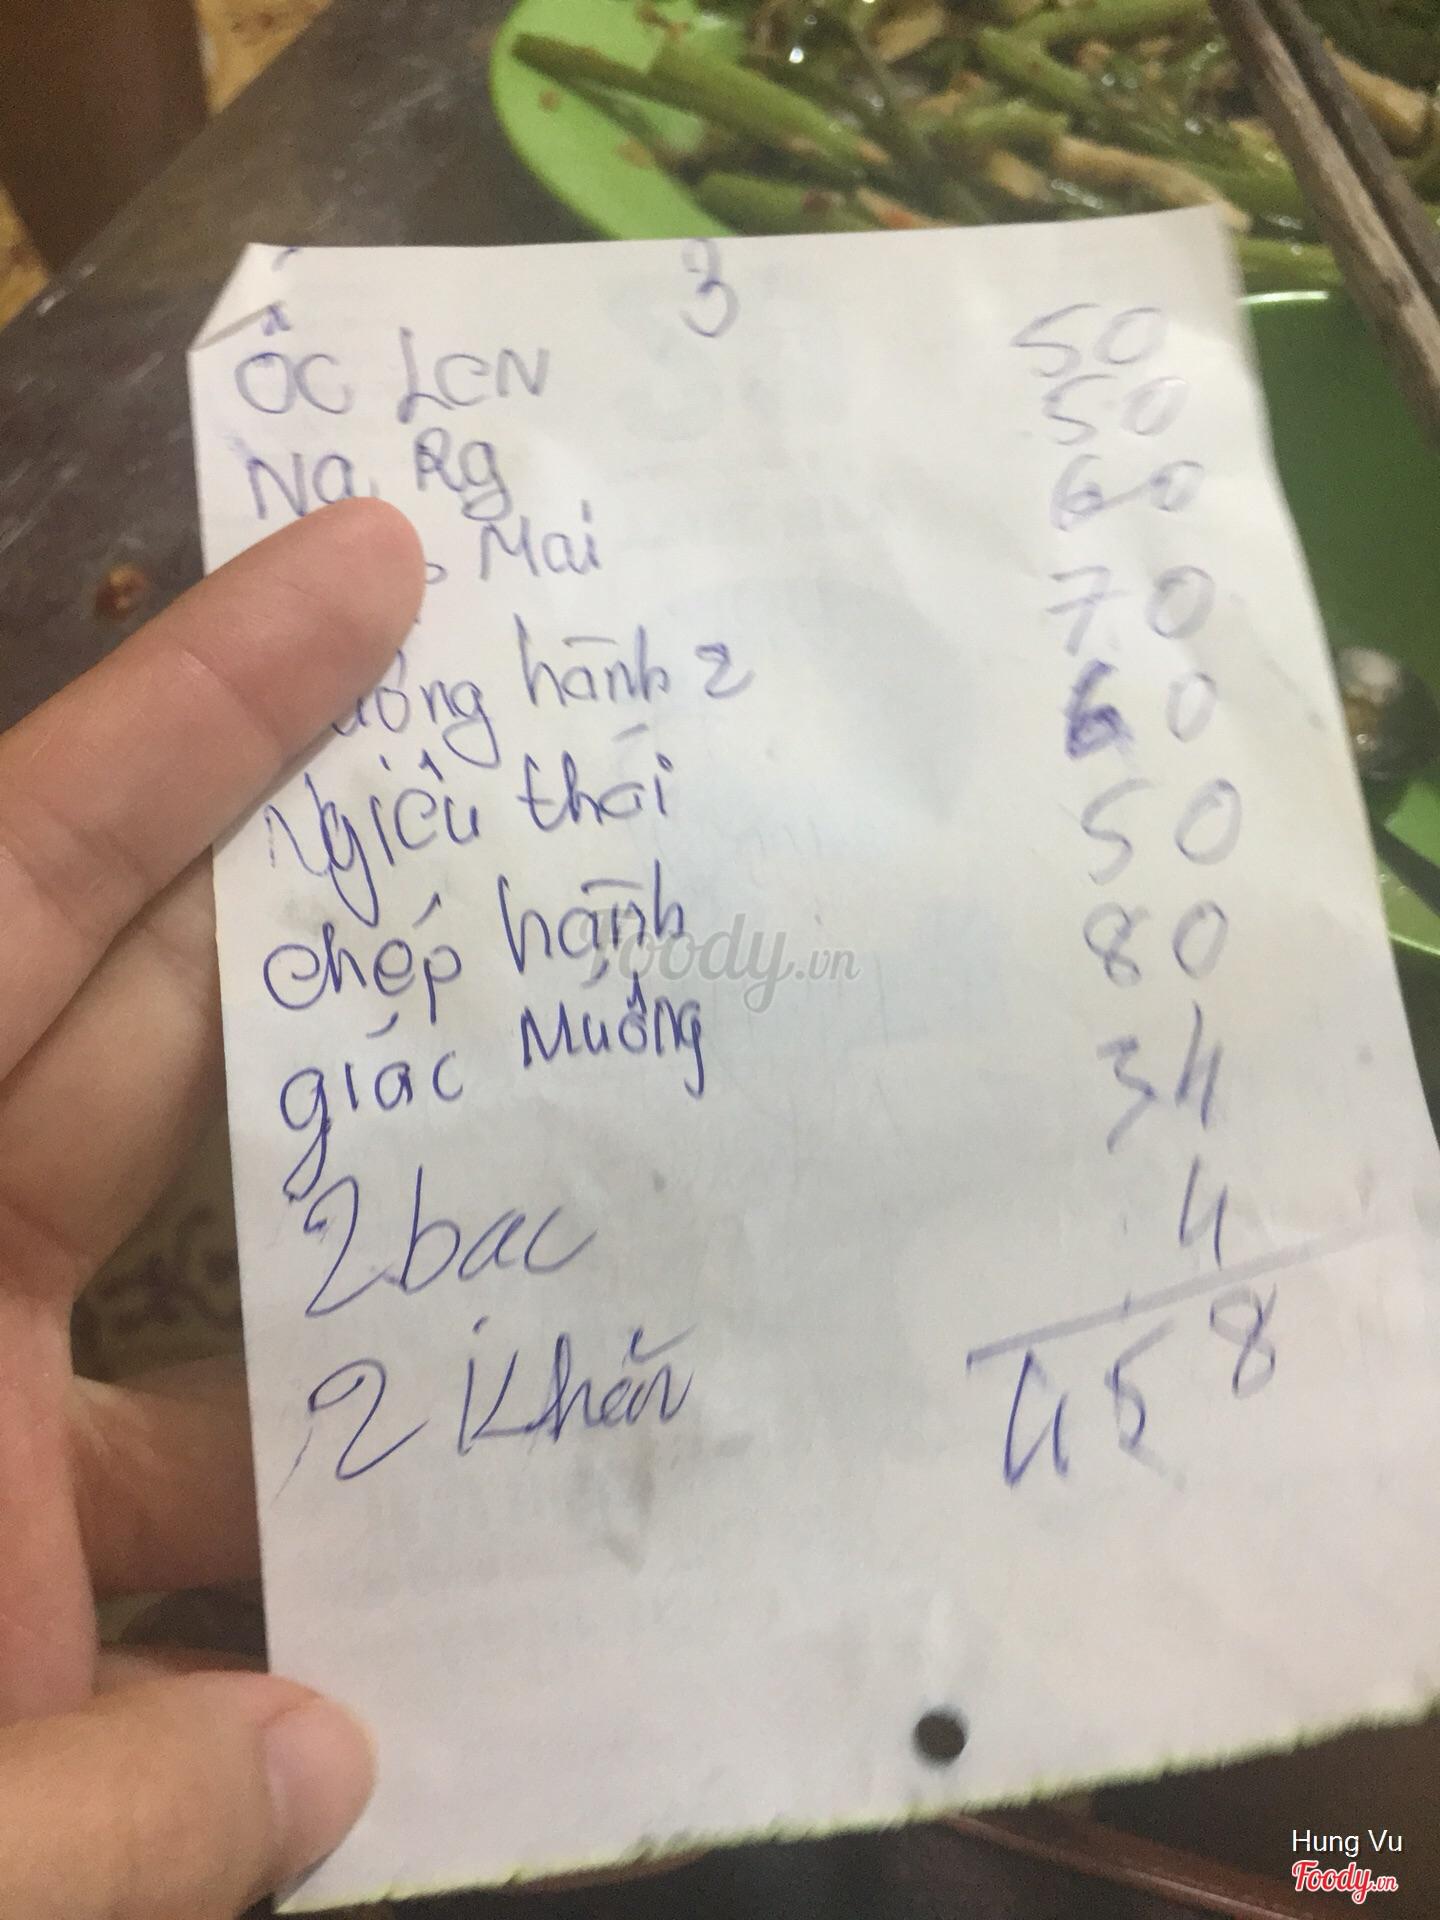 3
ỐC LEN 50
Na Rg 50
Mai 60
hành 2 70
Nghiêu thái 60
chép hành 50
giác Muống 80
2 bac 34
2 Khăn 4
458
Foody.vn
Hung Vu
Foody.vn